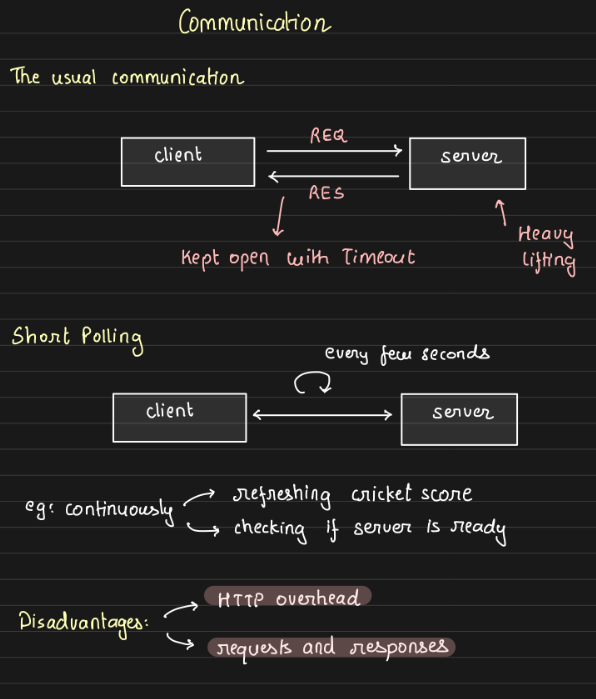 Communication
The usual communication
REQ
client
server
RES
Kept open with Timeout
Heavy
lifting
Short Polling
every few seconds
client
server
eg: continuously
refreshing cricket score
checking if server is ready
Disadvantages:
HTTP overhead
requests and responses